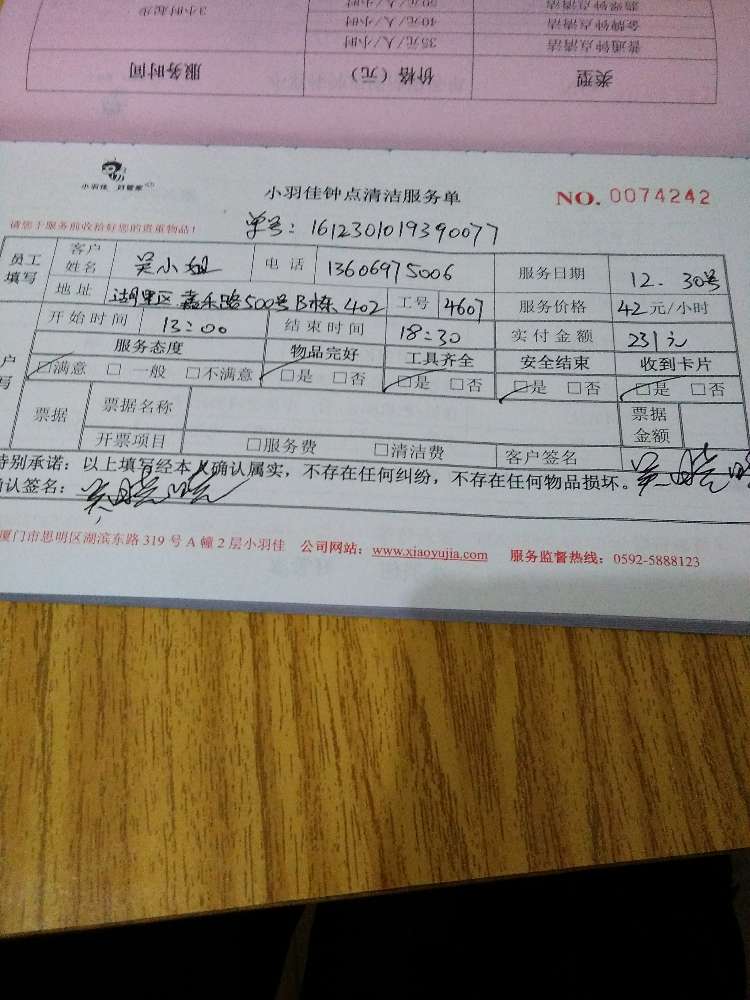 3小时起步
翡翠钟点清洁 50元/人/小时
金牌钟点清洁 40元/人/小时
普通钟点清洁 35元/人/小时
类型 价格（元） 服务时间
小羽佳 好管家
小羽佳钟点清洁服务单 NO. 0074242
请您于服务前收拾好您的贵重物品！
单号：1612301019390077
员工填写 客户姓名 吴小姐 电话 13606975006 服务日期 12.30号
地址 湖里区嘉禾路500号B栋402 工号 4607 服务价格 42元/小时
开始时间 13:00 结束时间 18:30 实付金额 231元
户 写 服务态度 物品完好 工具齐全 安全结束 收到卡片
□满意 □一般 □不满意 □是 □否 □是 □否 □是 □否 □是 □否
票据 票据名称 票据金额
开票项目 □服务费 □清洁费 客户签名
特别承诺：以上填写经本人确认属实，不存在任何纠纷，不存在任何物品损坏。
确认签名：
厦门市思明区湖滨东路319号A幢2层小羽佳 公司网站：www.xiaoyujia.com 服务监督热线：0592-5888123